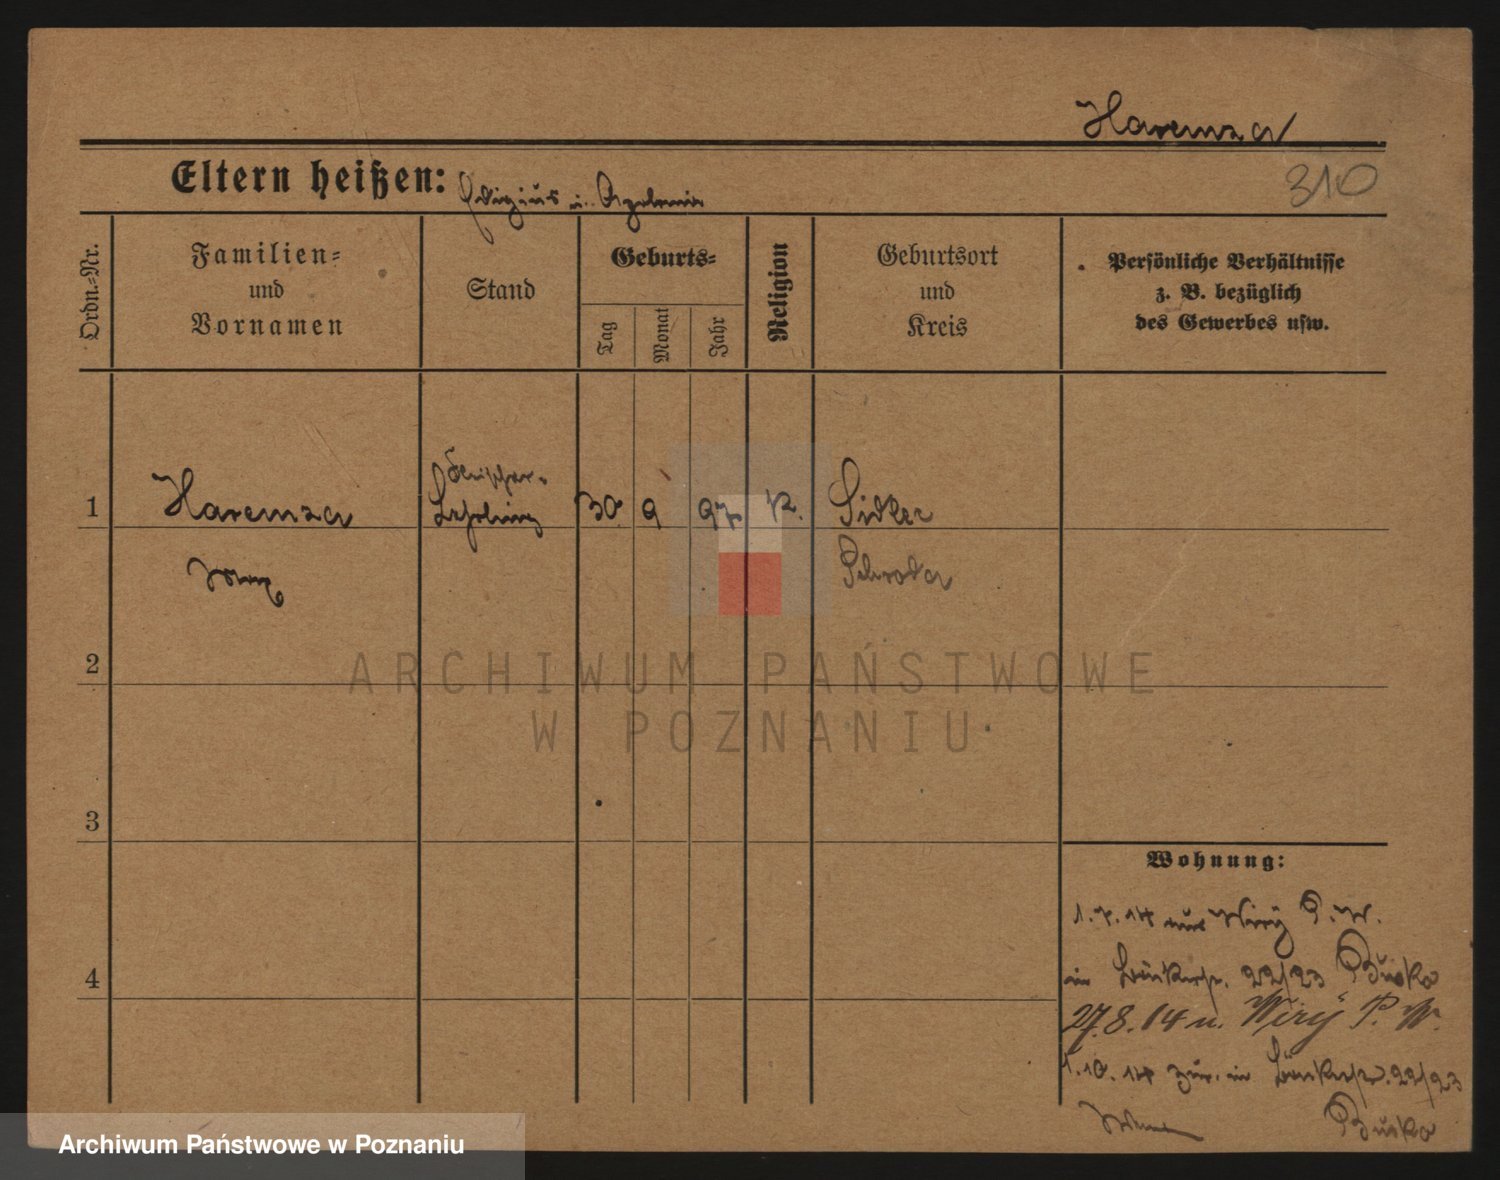 Haremza
310
Eltern heißen:
u.
Ordn.=Nr.
Familien=
und
Vornamen
Stand
Geburts=
Tag
Monat
Jahr
Religion
Geburtsort
und
Kreis
Persönliche Verhältnisse
z. B. bezüglich
des Gewerbes usw.
1
Haremza
Lehrling
30
9
97
K.
Schroda
2
ARCHIWUM PAŃSTWOWE
W POZNANIU
3
Wohnung:
1.7.14 aus Wiry P. W.
in 22/23 Busko
4
27.8.14 n. Wiry P. W.
1.10.14 zur. in 22/23
Busko
Archiwum Państwowe w Poznaniu